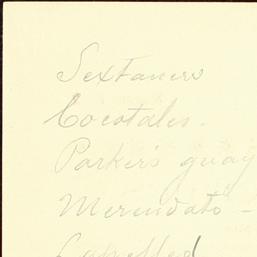 Sextaners
Cocotales.
Parker's quay
Merendato -